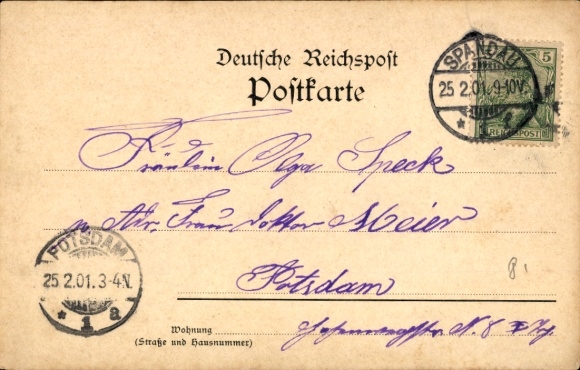 Deutsche Reichspost
Postkarte
SPANDAU
25 2.01. 9-10V.
* 1 *
5
REICHSPOST
Fräulein Olga Speck
Adr. Frau Doktor Meier
Potsdam
POTSDAM
25 2.01. 3-4N.
* 1 a
8
Wohnung
(Straße und Hausnummer)
N. 8